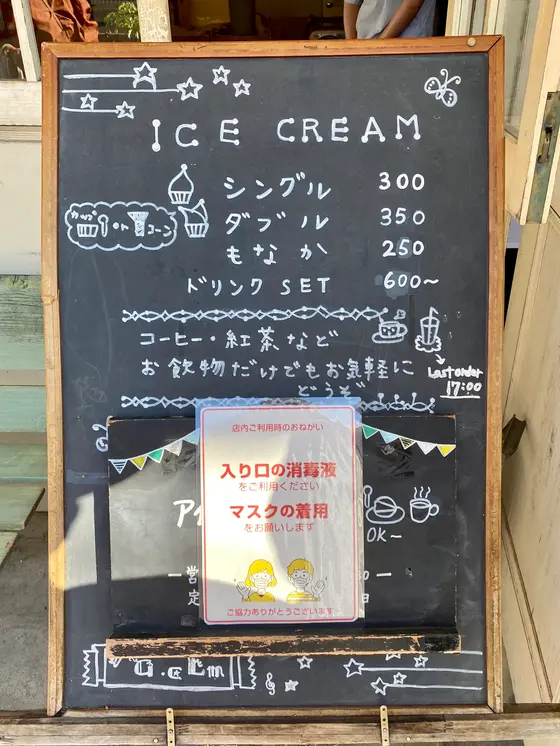 ICE CREAM
シングル 300
カップ or コーン
ダブル 350
もなか 250
ドリンク SET 600~
コーヒー・紅茶など
お飲物だけでもお気軽に
どうぞ
Last order
17:00
店内ご利用時のおねがい
入り口の消毒液
をご利用ください
マスクの着用
をお願いします
ご協力ありがとうございます
アイ
OK~
営
定